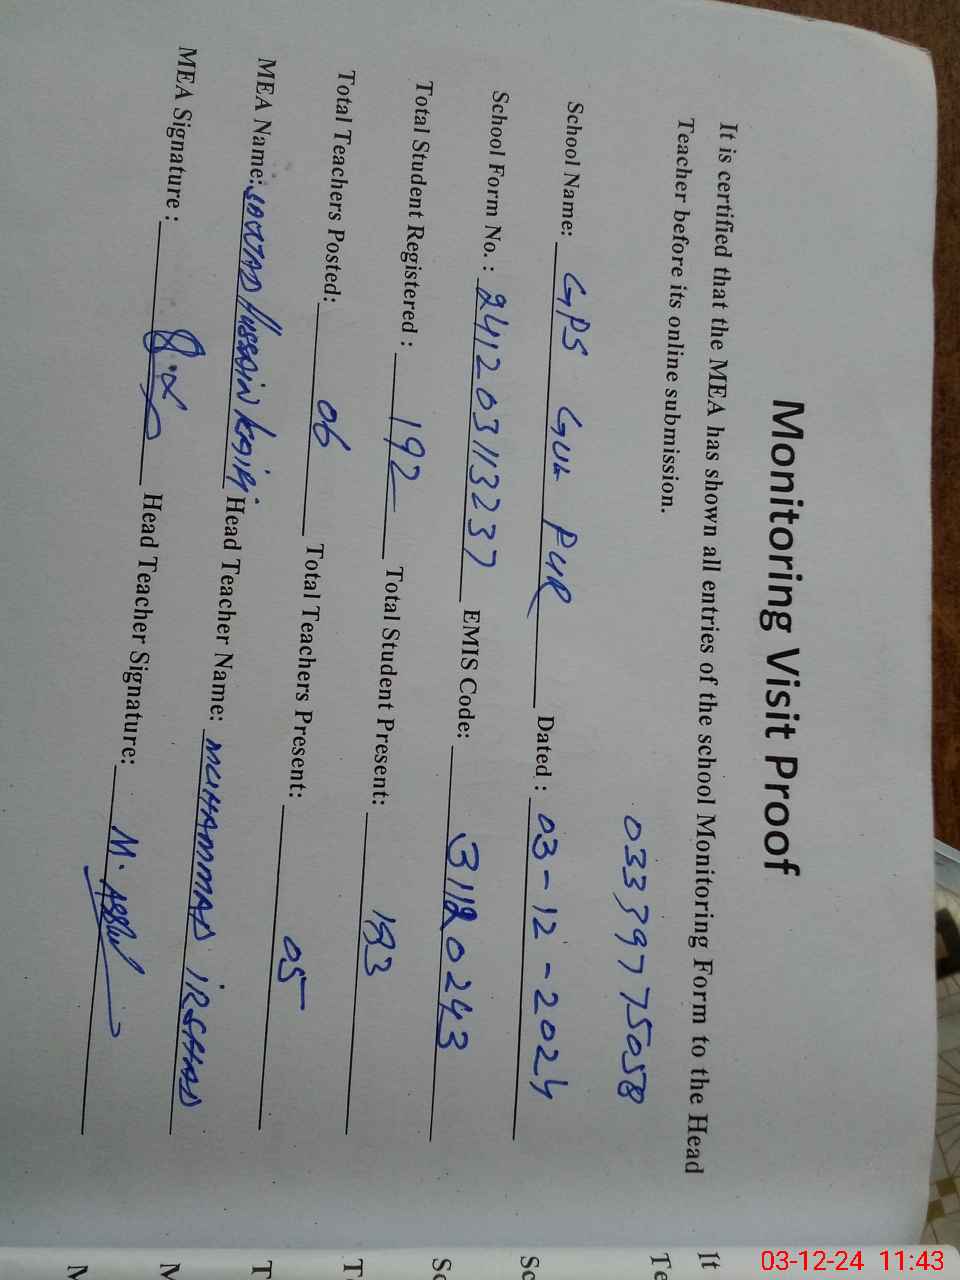 Monitoring Visit Proof
It is certified that the MEA has shown all entries of the school Monitoring Form to the Head
Teacher before its online submission.
03339775058
School Name: GPS GUL PUR Dated : 03-12-2024
School Form No. : 241203113237 EMIS Code: 31120243
Total Student Registered : 192 Total Student Present: 183
Total Teachers Posted: 06 Total Teachers Present: 05
MEA Name: Hussain Head Teacher Name: MUHAMMAD IRSHAD
MEA Signature : Head Teacher Signature: M.
It
Te
Sc
Sc
T
T
M
M
03-12-24 11:43